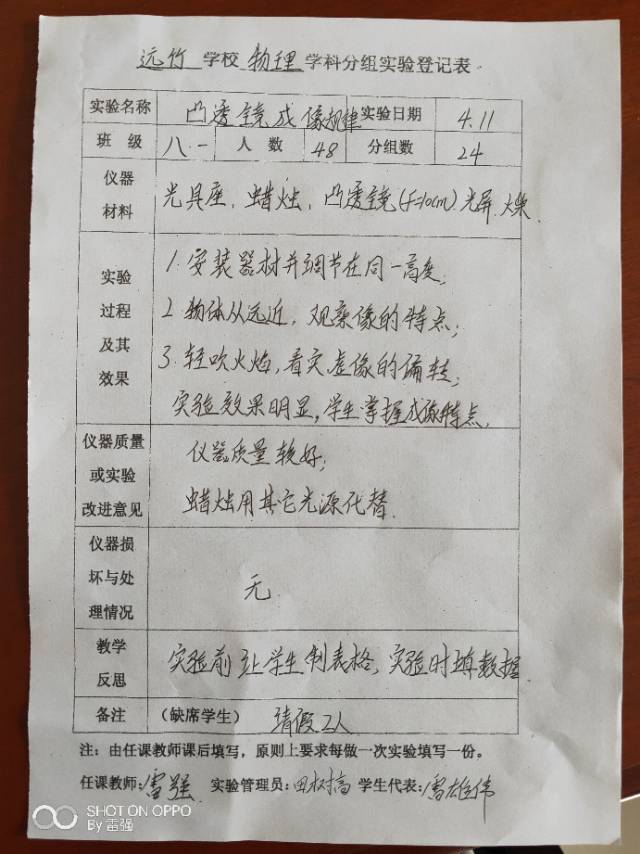 远竹学校物理学科分组实验登记表
实验名称 凸透镜成像规律 实验日期 4.11
班级 八·一 人数 48 分组数 24
仪器材料 光具座、蜡烛、凸透镜(f=10cm)光屏、火柴
实验过程及其效果
1. 安装器材并调节在同一高度;
2. 物体从远近,观察像的特点;
3. 轻吹火焰,看实虚像的偏转;
实验效果明显,学生掌握成像特点.
仪器质量或实验改进意见
仪器质量较好;
蜡烛用其它光源代替.
仪器损坏与处理情况 无.
教学反思 实验前让学生制表格,实验时填数据
备注 (缺席学生) 请假2人
注:由任课教师课后填写,原则上要求每做一次实验填写一份。
任课教师:雷强 实验管理员:田 学生代表:雷雄伟
SHOT ON OPPO
By 雷强